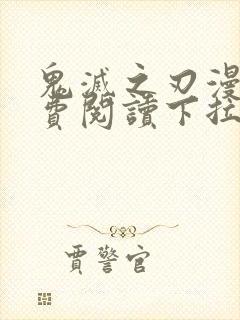 鬼滅之刃漫
費閱讀下拉
賈警官